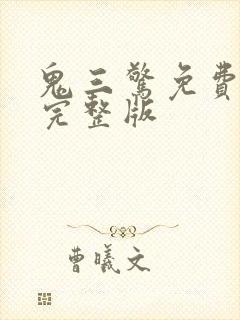 鬼三驚免費
完整版
曹曦文